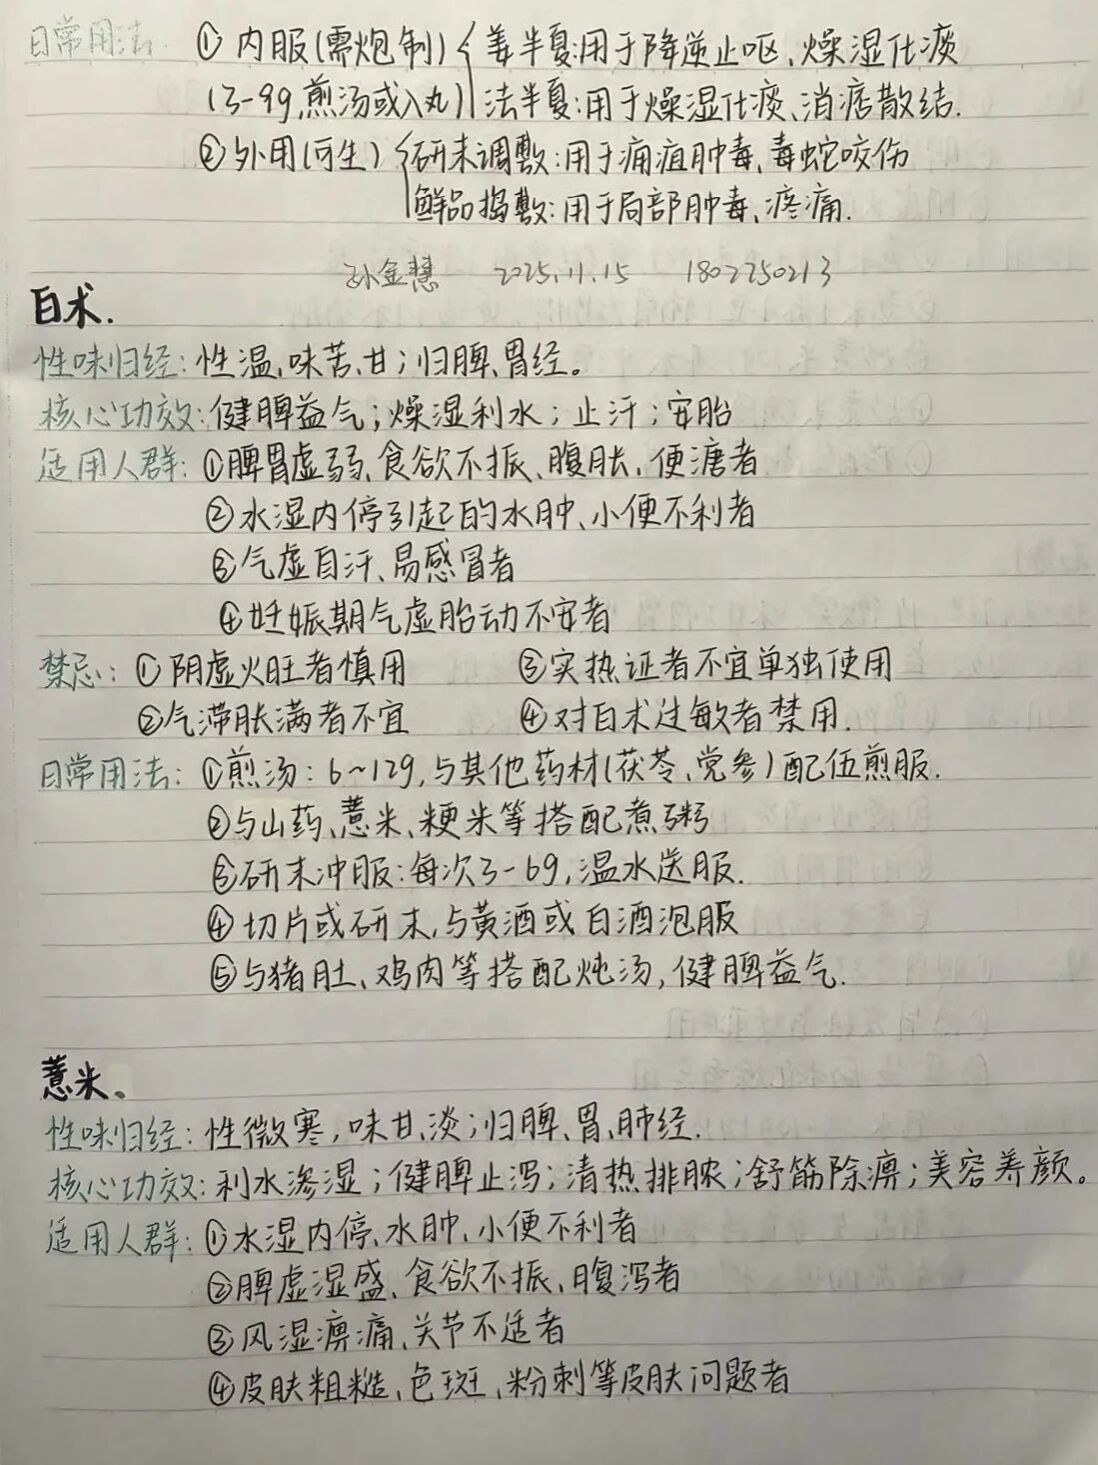 日常用法: ①内服(需炮制) { 姜半夏:用于降逆止呕、燥湿化痰
(3-9g,煎汤或入丸) 法半夏:用于燥湿化痰、消痞散结.
②外用(可生) { 研末调敷:用于痈疽肿毒、毒蛇咬伤
鲜品捣敷:用于局部肿毒、疼痛.
孙金慧 2025.11.15 18027750213
白术.
性味归经:性温、味苦、甘;归脾、胃经。
核心功效:健脾益气;燥湿利水;止汗;安胎
适用人群:①脾胃虚弱、食欲不振、腹胀、便溏者
②水湿内停引起的水肿、小便不利者
③气虚自汗、易感冒者
④妊娠期气虚胎动不安者
禁忌:①阴虚火旺者慎用 ③实热证者不宜单独使用
②气滞胀满者不宜 ④对白术过敏者禁用.
日常用法:①煎汤:6~12g,与其他药材(茯苓、党参)配伍煎服.
②与山药、薏米、粳米等搭配煮粥
③研末冲服:每次3-6g,温水送服.
④切片或研末,与黄酒或白酒泡服
⑤与猪肚、鸡肉等搭配炖汤,健脾益气.
薏米、
性味归经:性微寒,味甘、淡;归脾、胃、肺经.
核心功效:利水渗湿;健脾止泻;清热排脓;舒筋除痹;美容养颜。
适用人群:①水湿内停、水肿、小便不利者
②脾虚湿盛、食欲不振、腹泻者
③风湿痹痛、关节不适者
④皮肤粗糙、色斑、粉刺等皮肤问题者